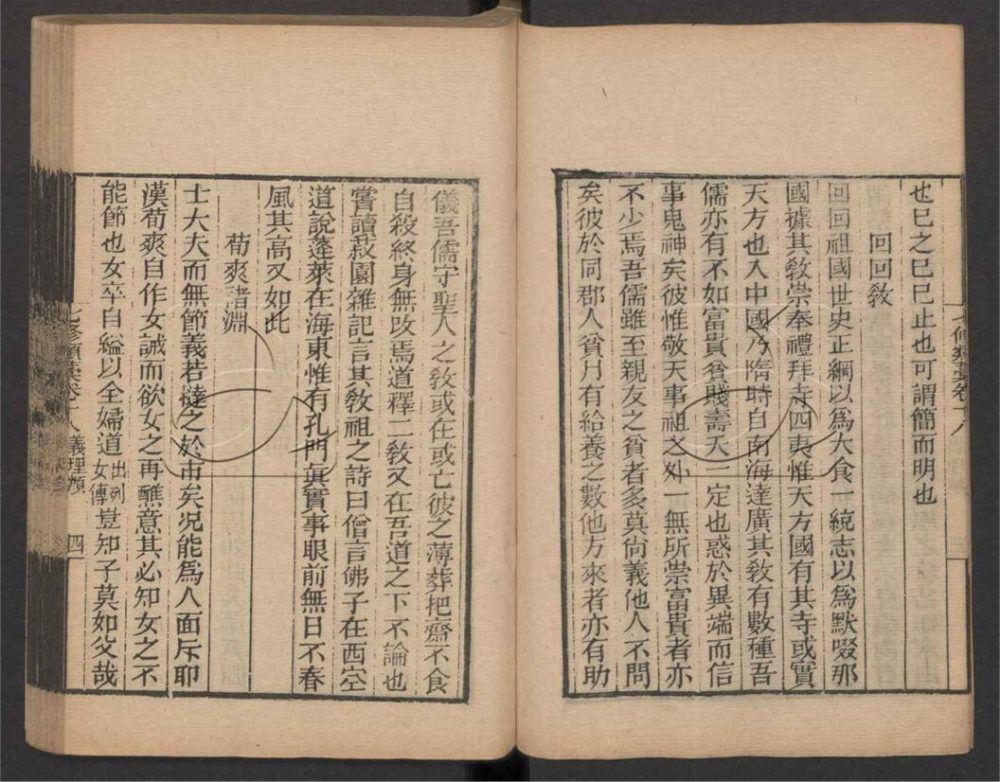 也巳之巳巳止也可謂簡而明也
回回敎
回回祖國世史正綱以爲大食一統志以爲默啜那
國據其敎崇奉禮拜寺四夷惟天方國有其寺或實
天方也入中國乃隋時自南海達廣其敎有數種吾
儒亦有不如富貴貧賤壽夭一定也惑於異端而信
事鬼神矣彼惟敬天事祖之外一無所崇富貴者亦
不少焉吾儒雖至親友之貧者多莫尙義他人不問
矣彼於同郡人貧月有給養之數他方來者亦有助
儀吾儒守聖人之敎或在或亡彼之薄葬把齋不食
自殺終身無攺焉道釋二敎又在吾道之下不論也
嘗讀菽園雜記言其敎祖之詩曰僧言佛子在西空
道說蓬萊在海東惟有孔門眞實事眼前無日不春
風其高又如此
荀爽諸淵
士大夫而無節義若撻之於市矣况能爲人面斥耶
漢荀爽自作女誡而欲女之再醮意其必知女之不
能節也女卒自縊以全婦道出列女傳豈知子莫如父哉
七修類藁卷十八 義理類 四